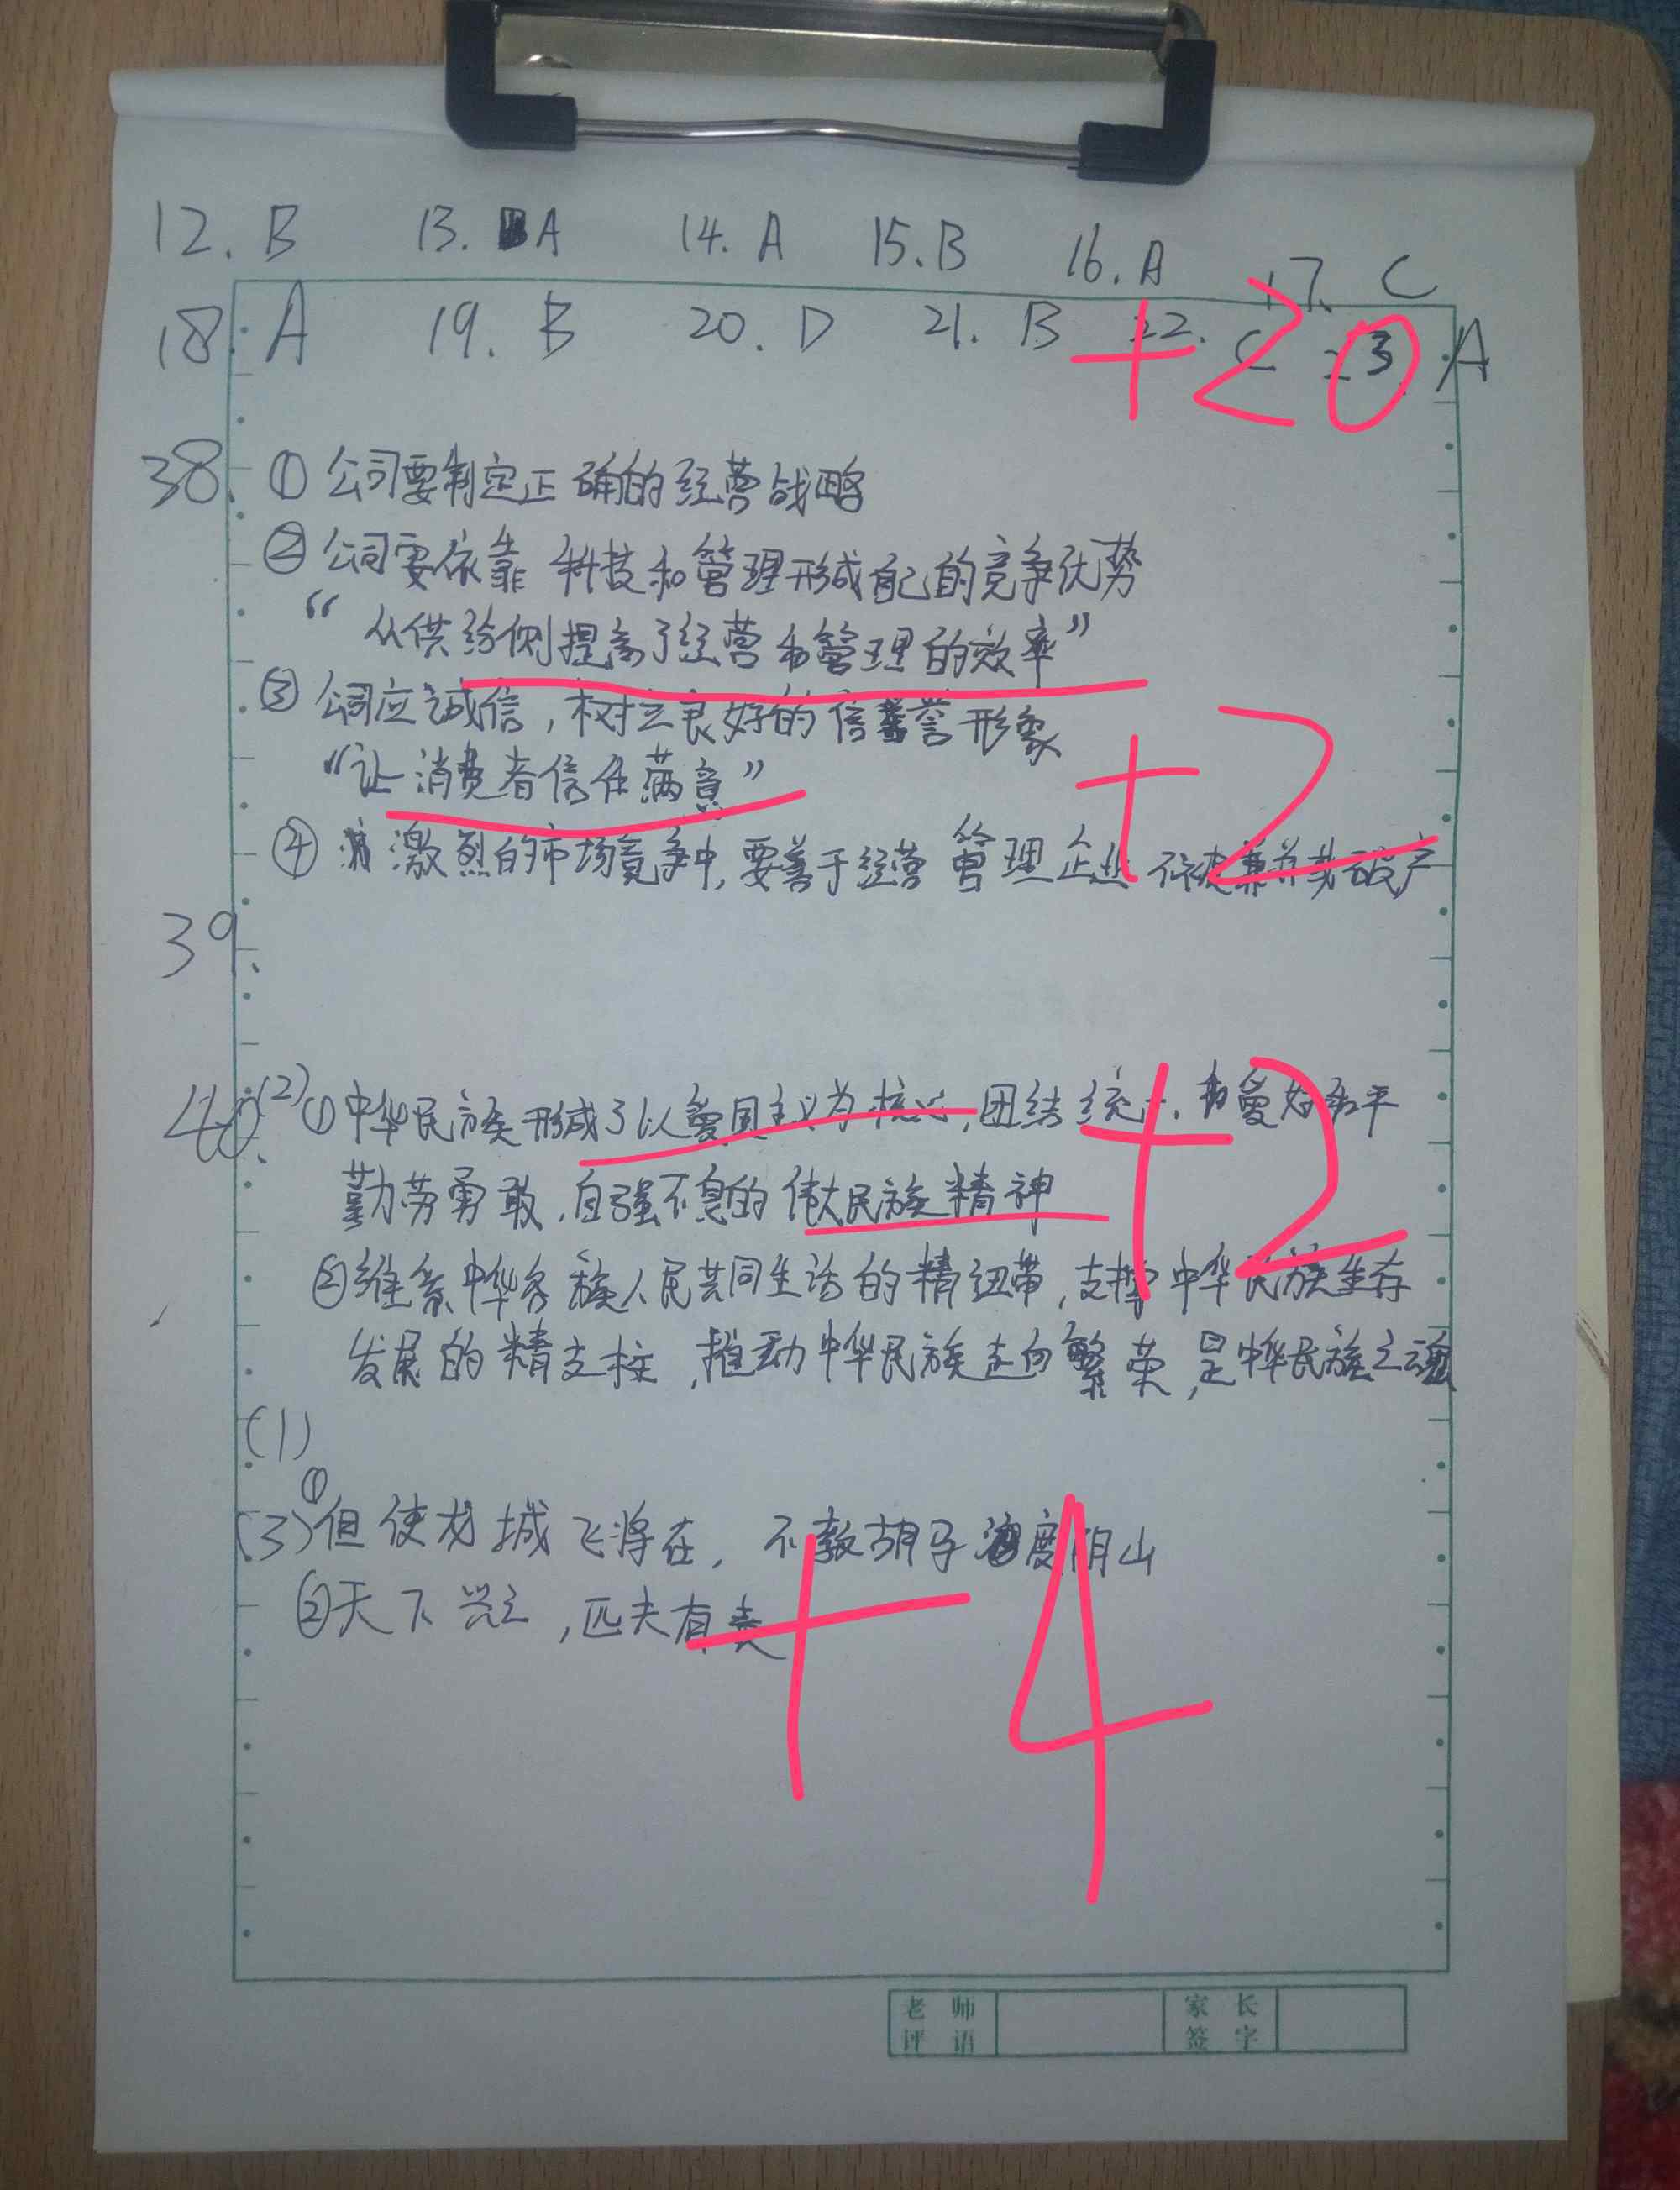 12. B 13. A 14. A 15. B 16. A 17. C
18. A 19. B 20. D 21. B 22. C 23. A
+20
38. ①公司要制定正确的经营战略
②公司要依靠科技和管理形成自己的竞争优势
“从供给侧提高了经营和管理的效率”
③公司应诚信,树立良好的信誉形象
“让消费者信任满意”
+2
④激烈的市场竞争中,要善于经营管理企业不被兼并或破产
39.
40. (2)①中华民族形成了以爱国主义为核心,团结统一、爱好和平
勤劳勇敢,自强不息的伟大民族精神
+2
②维系中华各族人民共同生活的精纽带,支撑中华民族生存
发展的精支柱,推动中华民族走向繁荣,是中华民族之魂
(1)
(3)①但使龙城飞将在,不教胡马度阴山
②天下兴亡,匹夫有责
+4
老师评语 家长签字